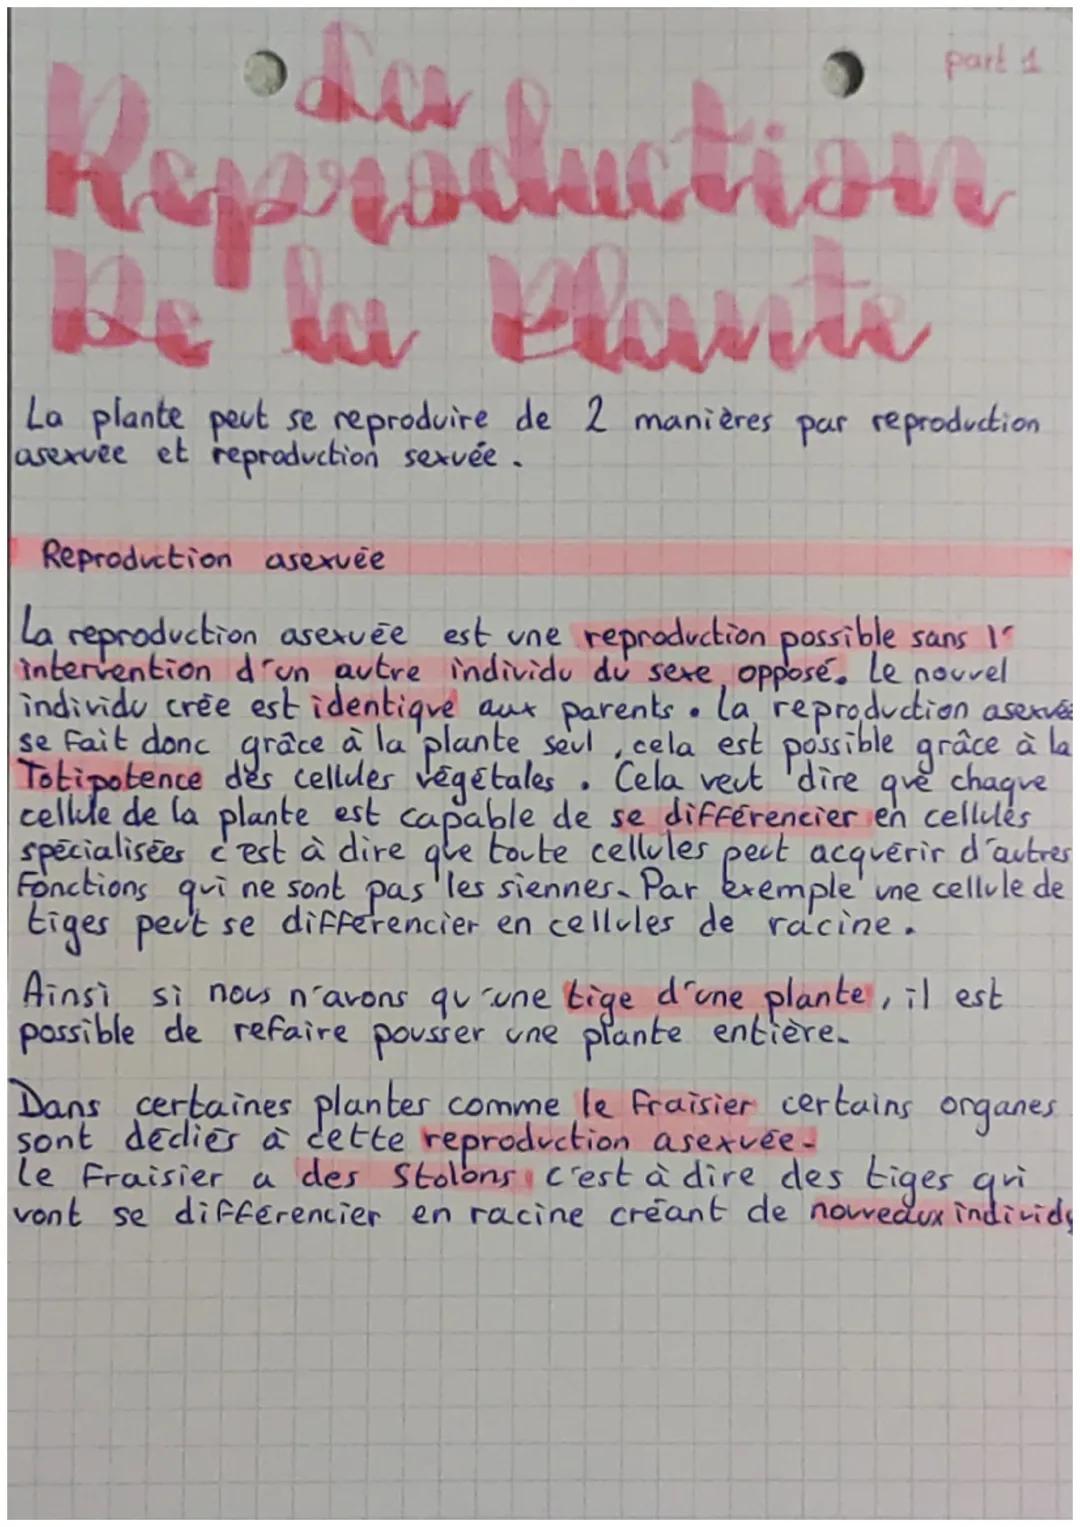 part 1
La
Reproduction
De la Plante
La plante peut se reproduire de 2 manières par reproduction
asexuée et reproduction sexuée.
Reproduction asexuée
La reproduction asexuée est une reproduction possible sans l'
intervention d'un autre individu du sexe opposé. Le nouvel
individu crée est identique aux parents. La reproduction asexuée
se fait donc grâce à la plante seul, cela est possible grâce à la
Totipotence des cellules végétales. Cela veut dire que chaque
cellule de la plante est capable de se différencier en cellules
spécialisées c'est à dire que toute cellules peut acquérir d'autres
Fonctions qui ne sont pas les siennes. Par exemple une cellule de
tiges peut se differencier en cellules de racine.
Ainsi si nous n'avons qu'une tige d'une plante, il est
possible de refaire pousser une plante entière.
Dans certaines plantes comme le Fraisier certains organes
sont dédiés à cette reproduction asexuée.
Le Fraisier a des Stolons c'est à dire des tiges qui
vont se différencier en racine créant de nouveaux individu